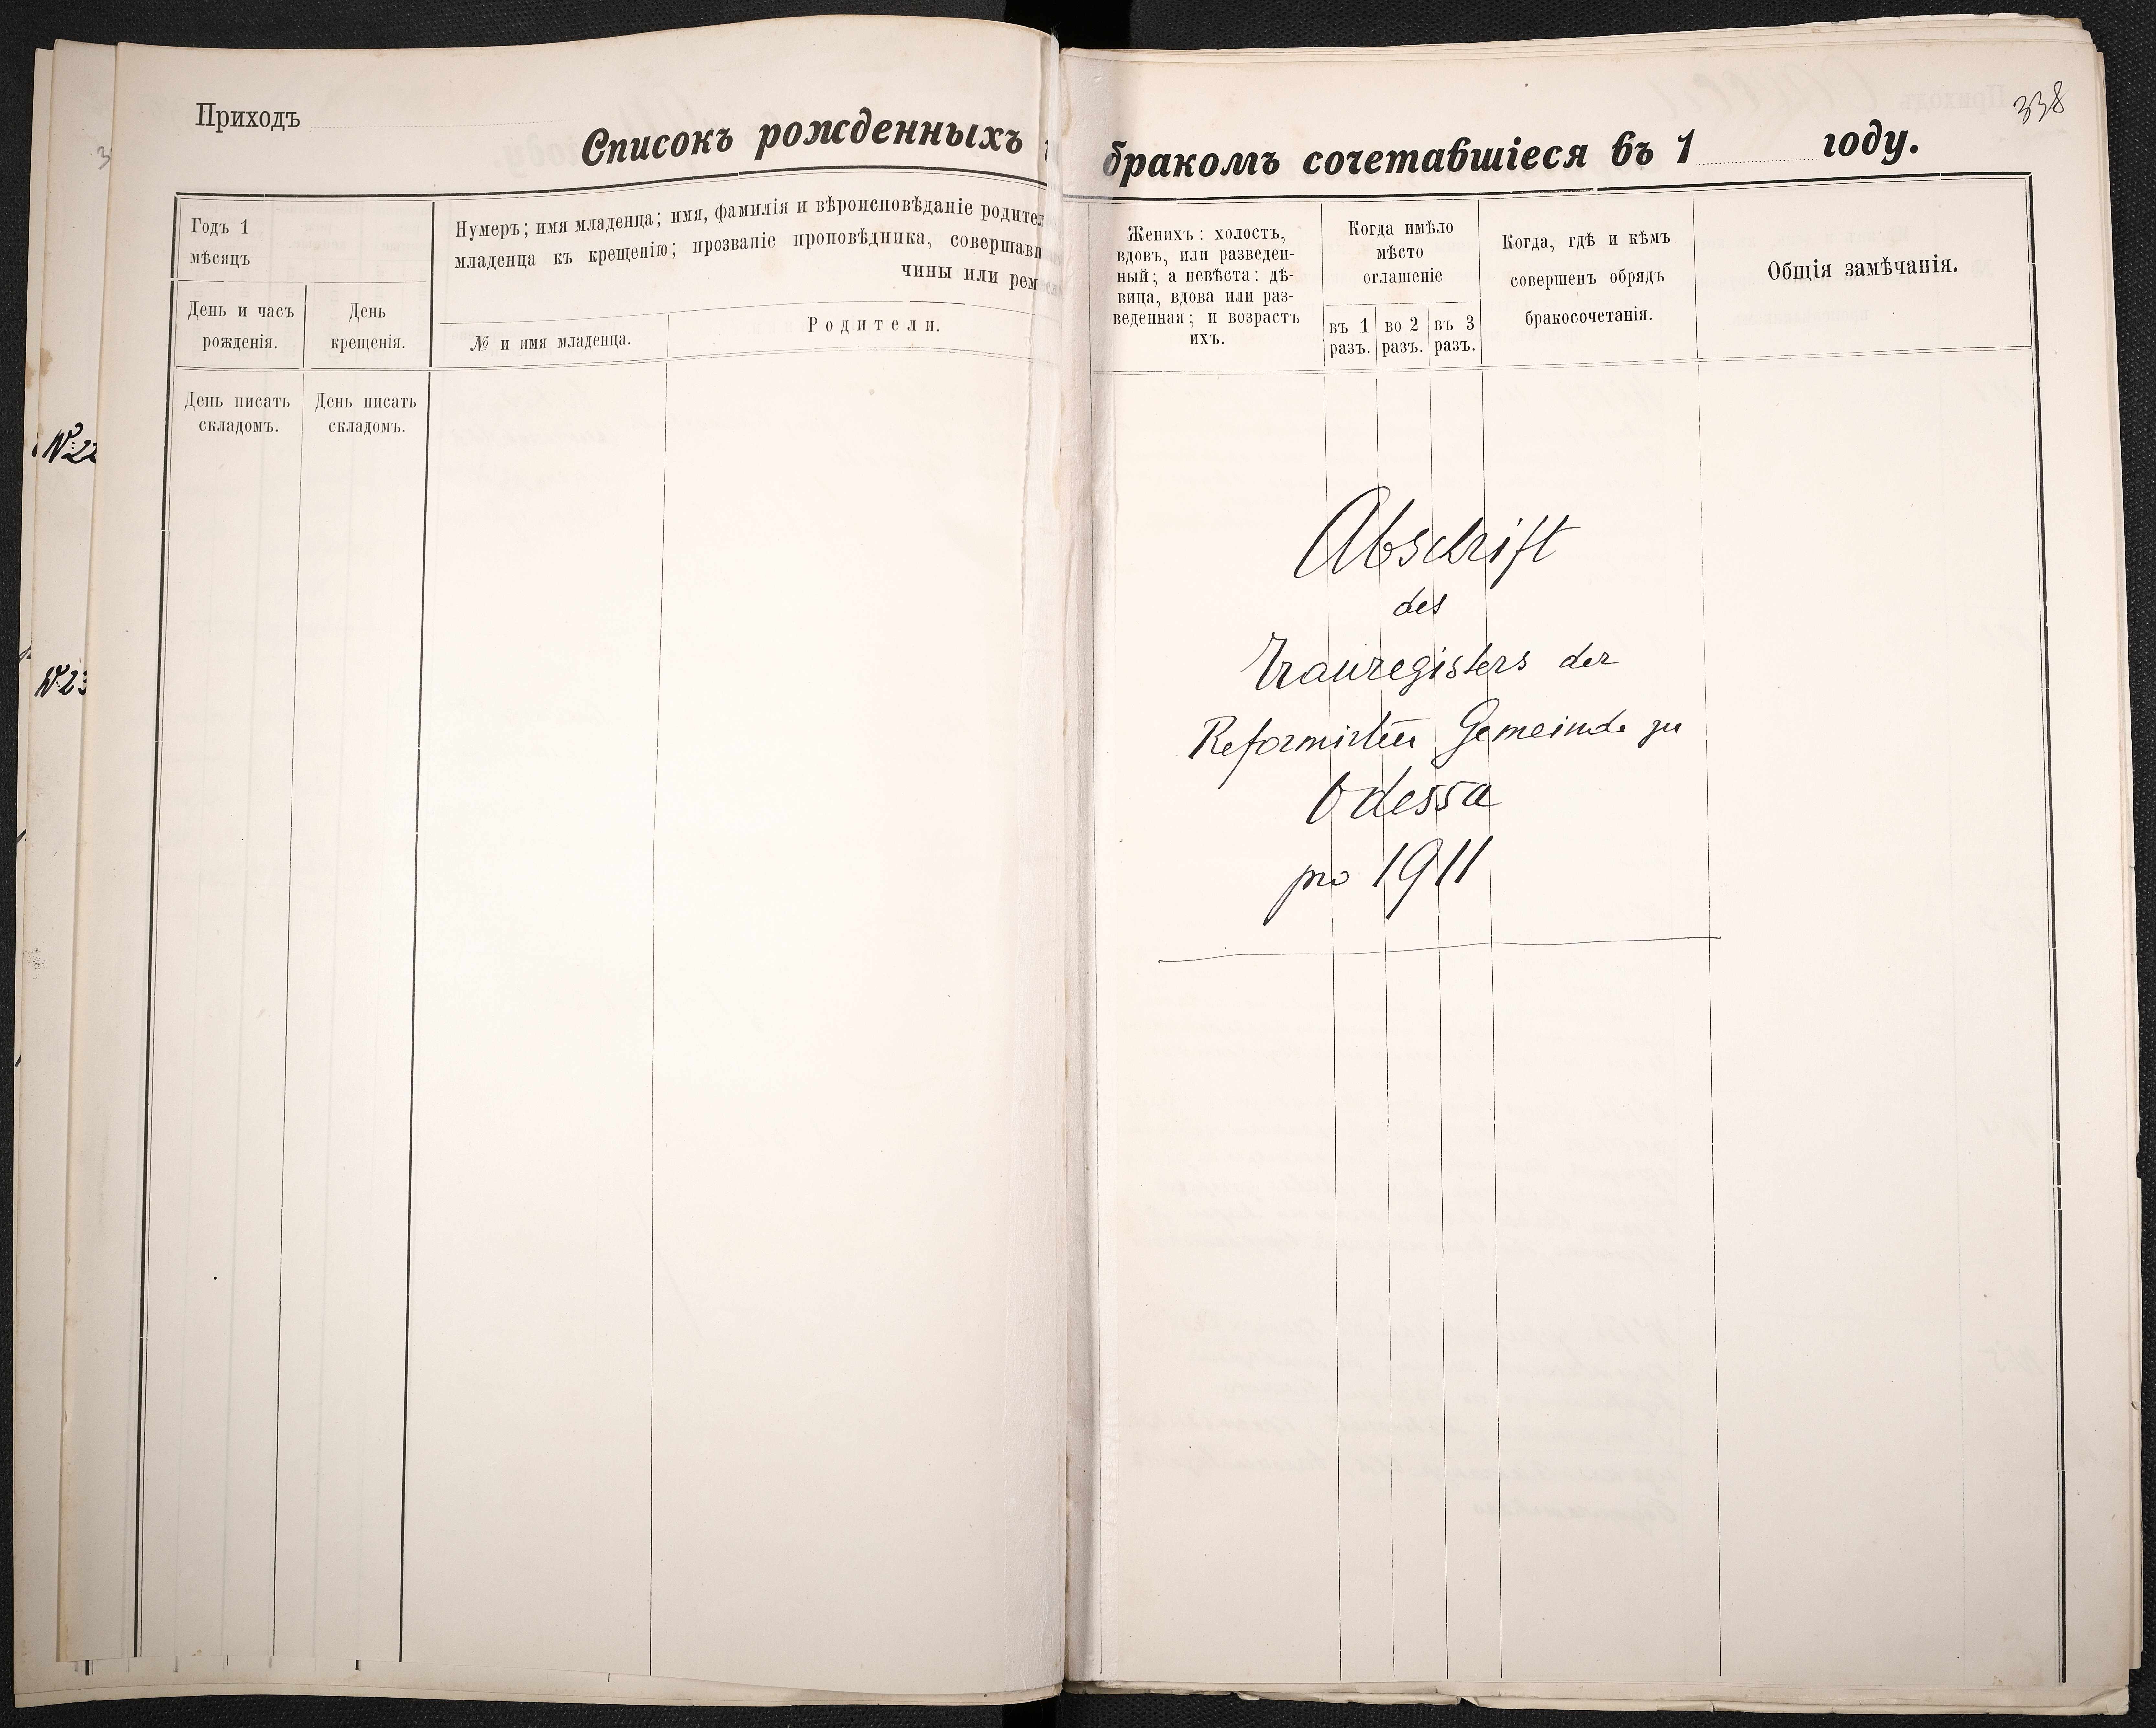 Приходъ
Списокъ рожденныхъ
Годъ 1
мѣсяцъ
День и часъ
рожденія.
День
крещенія.
Нумеръ; имя младенца; имя, фамилія и вѣроисповѣданіе родител
младенца къ крещенію; прозваніе проповѣдника, совершавш
чины или ремесл
№ и имя младенца.
Родители.
День писать
складомъ.
День писать
складомъ.
№ 22
№ 23
338
бракомъ сочетавшіеся въ 1 году.
Женихъ: холостъ,
вдовъ, или разведен-
ный; а невѣста: дѣ-
вица, вдова или раз-
веденная; и возрастъ
ихъ.
Когда имѣло
мѣсто
оглашеніе
въ 1
разъ.
во 2
разъ.
въ 3
разъ.
Когда, гдѣ и кѣмъ
совершенъ обрядъ
бракосочетанія.
Общія замѣчанія.
Abschrift
des
Trauregisters der
Reformirten Gemeinde zu
Odessa
pro 1911